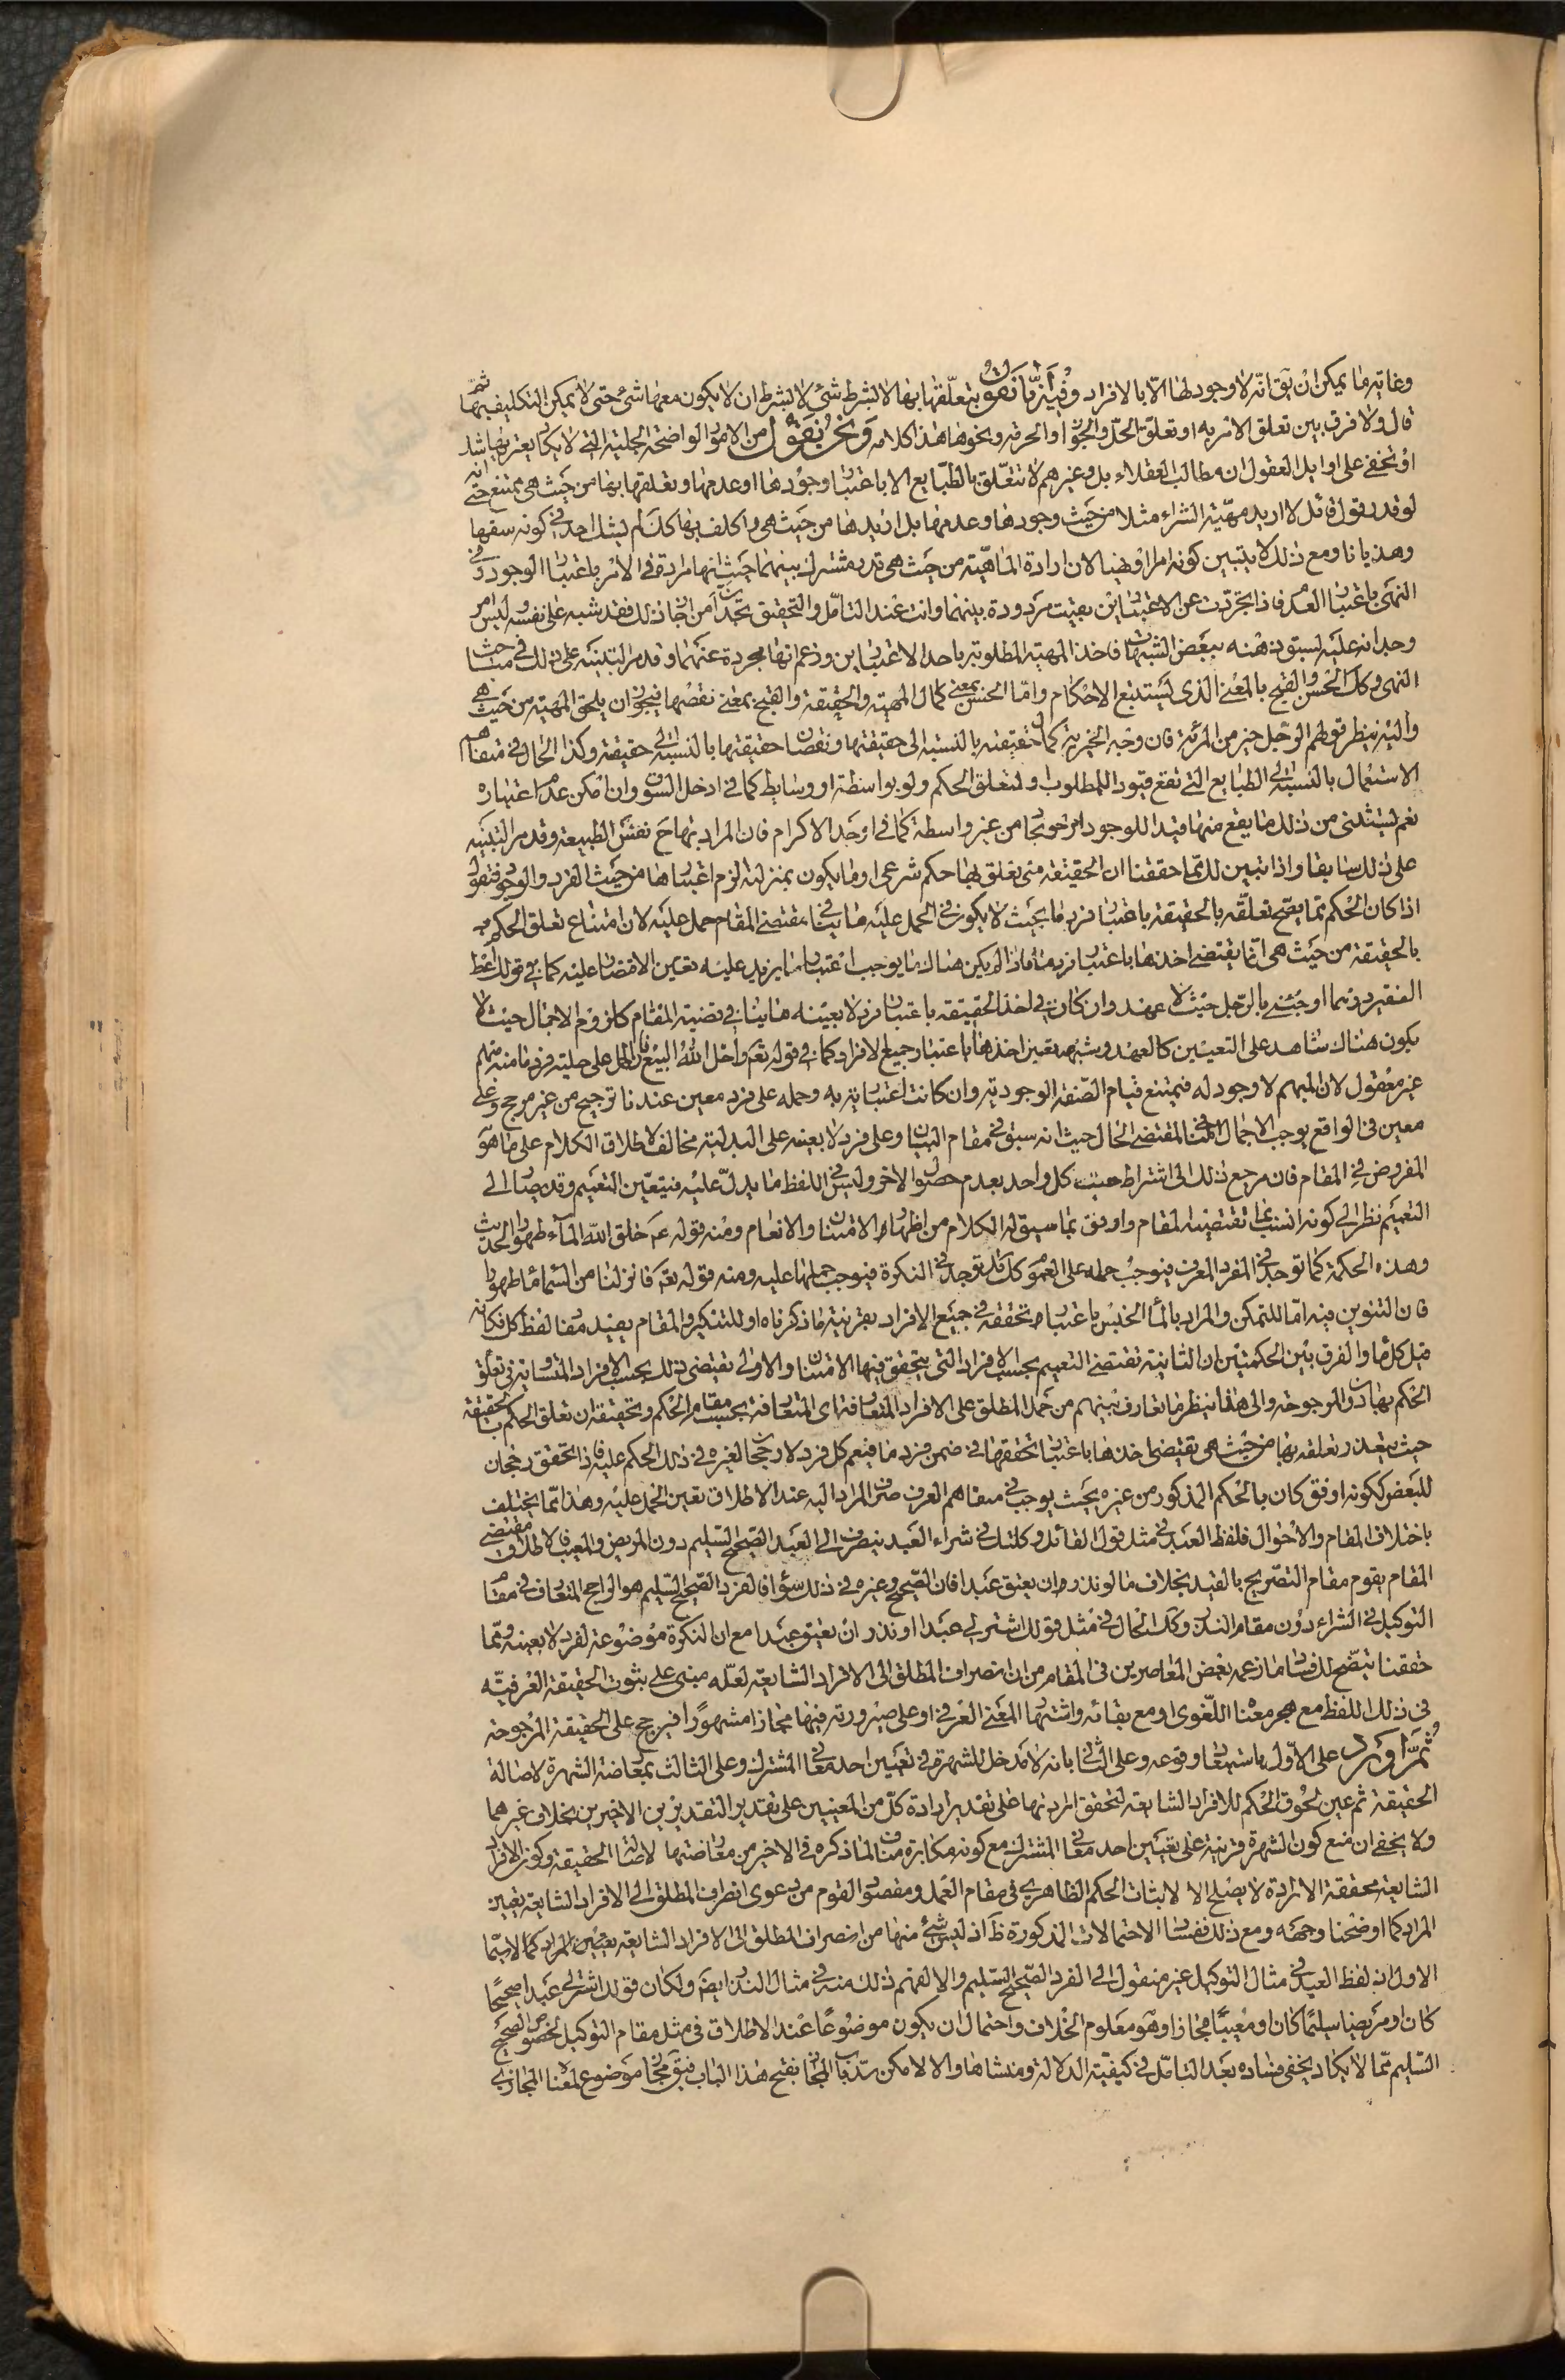 وغاية ما يمكن ان يق انّه لا وجود لها الا بالافراد وفيه انّا نقول بتعلّقها بها لا بشرط شئ لا بشرط ان لا يكون معها شئ حتى لا يمكن التكليف بها ثمّ
قال ولا فرق بين تعلق الامر به او تعلق الحلّ والجواز والحرمة ونحوها هذا كلامه ونحن نقول من الامور الواضحة الجلية التي لا يكاد يعتريها شك
او تخفى على اوايل العقول ان مطالب العقلاء بل وغيرهم لا تتعلّق بالطبايع الا باعتبار وجودها او عدمها وتعلقها بها من حيث هي ممتنع حتى انه
لو قدر قول قائل لا اريد مهيّة الشراء مثلا من حيث وجودها وعدمها بل اريدها من حيث هي واكلف بها كذلك لم يشك احد في كونه سفها
وهذيانا ومع ذلك لا يتبين كونه امرا او نهيا لان ارادة الماهيّة من حيث هي قدر مشترك بينهما حيث انها مرادة في الامر باعتبار الوجود وفي
النهى باعتبار العدم فاذا تجردت عن الاعتبارين بقيت مردودة بينهما وانت عند التأمّل والتحقيق تجد ان من اجاز ذلك فقد شبه على نفسه ليس امر
وجدانه عليه لسبق ذهنه ببعض الشبهات فاخذ المهية المطلوبة باحد الاعتبارين وزعم انها مجردة عنهما وقد مر التنبيه على ذلك في مباحث
النهى وكك الحسن والقبح بالمعنى الذى يستتبع الاحكام وامّا الحسن بمعنى كمال المهية والحقيقة والقبح بمعنى نقصها فيجوز ان يلحق المهية من حيث هي
واليه ينظر قولهم الرجل خير من المرئة فان وجه الخيرية كمال حقيقته بالنسبة الى حقيقتها ونقصان حقيقتها بالنسبة الى حقيقته وكذا الحال في متفاهم
الاستعمال بالنسبة الى الطبايع التى تقع قيودا للمطلوب او لمتعلق الحكم ولو بواسطة او وسايط كما في ادخل السوق وان امكن عدم اعتباره
نعم يستثنى من ذلك ما يقع منها قيدا للوجود من غير واسطة كما في اوجد الاكرام فان المراد بها ح نفس الطبيعة وقد مر التنبيه
على ذلك سابقا واذا تبين لك مما حققنا ان الحقيقة متى تعلق بها حكم شرعى او ما يكون بمنزلته لزم اعتبارها من حيث الفرد والوجود فنقول
اذا كان الحكم مما يصح تعلقه بالحقيقة باعتبار فرد ما بحيث لا يكون في الحمل عليه ما ينافي مقتضى المقام حمل عليه لان امتناع تعلق الحكم
بالحقيقة من حيث هي انّما يقتضى اخذها باعتبار فرد ما فاذا لم يكن هناك ما يوجب اعتبار ما يزيد عليه تعين الاقتصار عليه كما في قولك اعط
الفقير درهما او جئنى بالرجل حيث لا عهد وان كان في اخذ الحقيقة باعتبار فرد لا بعينه ما ينافي قضية المقام كلزوم الاجمال حيث لا
يكون هناك شاهد على التعيين كالعهد وشبهه تعين اخذها باعتبار جميع الافراد كما في قوله تعم واحل الله البيع فان الحمل على حلية فرد ما منه مبهم
غير معقول لان المبهم لا وجود له فيمتنع قيام الصفة الوجودية وان كانت اعتبارية به وحمله على فرد معين عندنا ترجيح من غير مرجح وعلى
معين في الواقع يوجب الاجمال المنافي لمقتضى الحال حيث انه سبق في مقام البيان وعلى فرد لا بعينه على البدلية مخالف لاطلاق الكلام على ما هو
المفروض في المقام فان مرجع ذلك الى اشتراط حلية كل واحد بعدم حصول الاخر وليس في اللفظ ما يدل عليه فيتعين التعميم وقد يصار الى
التعميم نظرا الى كونه انسب بما تقتضيه المقام واوفق بما سيق له الكلام من اظهار الامتنان والانعام ومنه قوله ع خلق الله الماء طهورا الحديث
وهذه الحكمة كما توجد في المفرد المعرف فيوجب حمله على العموم كك قد توجد في النكرة فيوجب حملها عليه ومنه قوله تعم وانزلنا من السماء ماء طهورا
فان التنوين فيه امّا للتمكن والمراد بالماء الجنس باعتبار تحققه في جميع الافراد بقرينة ما ذكرناه او للتنكير والمقام يفيد مفاد لفظ كل فكانه
قيل كل ماء والفرق بين الحكمتين ان الثانية تقتضى التعميم بحسب الافراد التى يتحقق فيها الامتنان والاولى تقتضى ذلك بحسب الافراد المتساوية في تعلق
الحكم بها دون المرجوحة والى هذا ينظر ما تعارف بينهم من حمل المطلق على الافراد المتعارفة اى المتعارفة بحسب مقام الحكم وتحقيقه ان تعلق الحكم بالحقيقة
حيث يتعذر تعلقه بها من حيث هي تقتضى اخذها باعتبار تحققها في ضمن فرد ما فيعم كل فرد لا رجحان لغيره في ذلك الحكم عليه فاذا تحقق رجحان
للبعض لكونه اوفق كان بالحكم المذكور من غيره بحيث يوجب في متفاهم العرف صرف المراد اليه عند الاطلاق تعين الحمل عليه وهذا ممّا يختلف
باختلاف المقام والاحوال فلفظ العبد في مثل قول القائل وكلتك في شراء العبد ينصرف الى العبد الصحيح السليم دون المريض والمعيب فالاطلاق مقتضى
المقام يقوم مقام التصريح بالقيد بخلاف ما لو نذر ان يعتق عبدا فان الصحيح وغيره في ذلك سواء فالفرد الصحيح السليم هو الراجح المتعارف في مقام
التوكيل في الشراء دون مقام النذر وكك الحال في مثل قولك اشتر لى عبدا او نذر ان يعتق عبدا مع ان النكرة موضوعة لفرد لا بعينه ومما
حققنا يتضح لك فساد ما زعمه بعض المعاصرين في المقام من ان انصراف المطلق الى الافراد الشايعة لعله مبنى على ثبوت الحقيقة العرفيّة
في ذلك اللفظ مع هجر معناه اللّغوى او مع بقائه واشتهار المعنى العرفي او على صيرورته فيها مجازا مشهورا فيرجح على الحقيقة المرجوحة
ثمّ اورد على الاوّل باستبعاد وقوعه وعلى الثانى بانه لا مدخل للشهرة في تعيين احد معانى المشترك وعلى الثالث بمعارضة الشهرة لاصالة
الحقيقة ثم عين لحوق الحكم للافراد الشايعة لتحقق ارادتها على تقدير ارادة كلّ من المعنيين على تقدير التقديرين الاخيرين بخلاف غيرهما
ولا يخفى ان منع كون الشهرة قرينة على تعيين احد معانى المشترك مع كونه مكابرة مناف لما ذكره في الاخير من معارضتها لاصالة الحقيقة وكون الافراد
الشايعة محققة الارادة لا يصلح الا لاثبات الحكم الظاهرى في مقام العمل ومقصود القوم من دعوى انصراف المطلق الى الافراد الشايعة تعيين
المراد كما اوضحنا وجهه ومع ذلك ففساد الاحتمالات المذكورة ظ اذ ليس شئ منها من انصراف المطلق الى الافراد الشايعة تعيين المراد كما لا سيّما
الاول اذ لفظ العبد في مثال التوكيل غير منقول الى الفرد الصحيح السليم والا لفهم ذلك منه في مثال النذر ايضا ولكان قولك اشتر لى عبدا صحيحا
كان او مريضا سليمًا كان او معيبًا مجازا وهو معلوم الخلاف واحتمال ان يكون موضوعًا عند الاطلاق في مثل مقام التوكيل لخصوص الصحيح
السليم ممّا لا يكاد يخفى فساده بعد التامّل في كيفيّة الدلالة ومنشاها والا لامكن سدّ باب المجاز بفتح هذا الباب فيق مجاز موضوع لمعناه المجازى